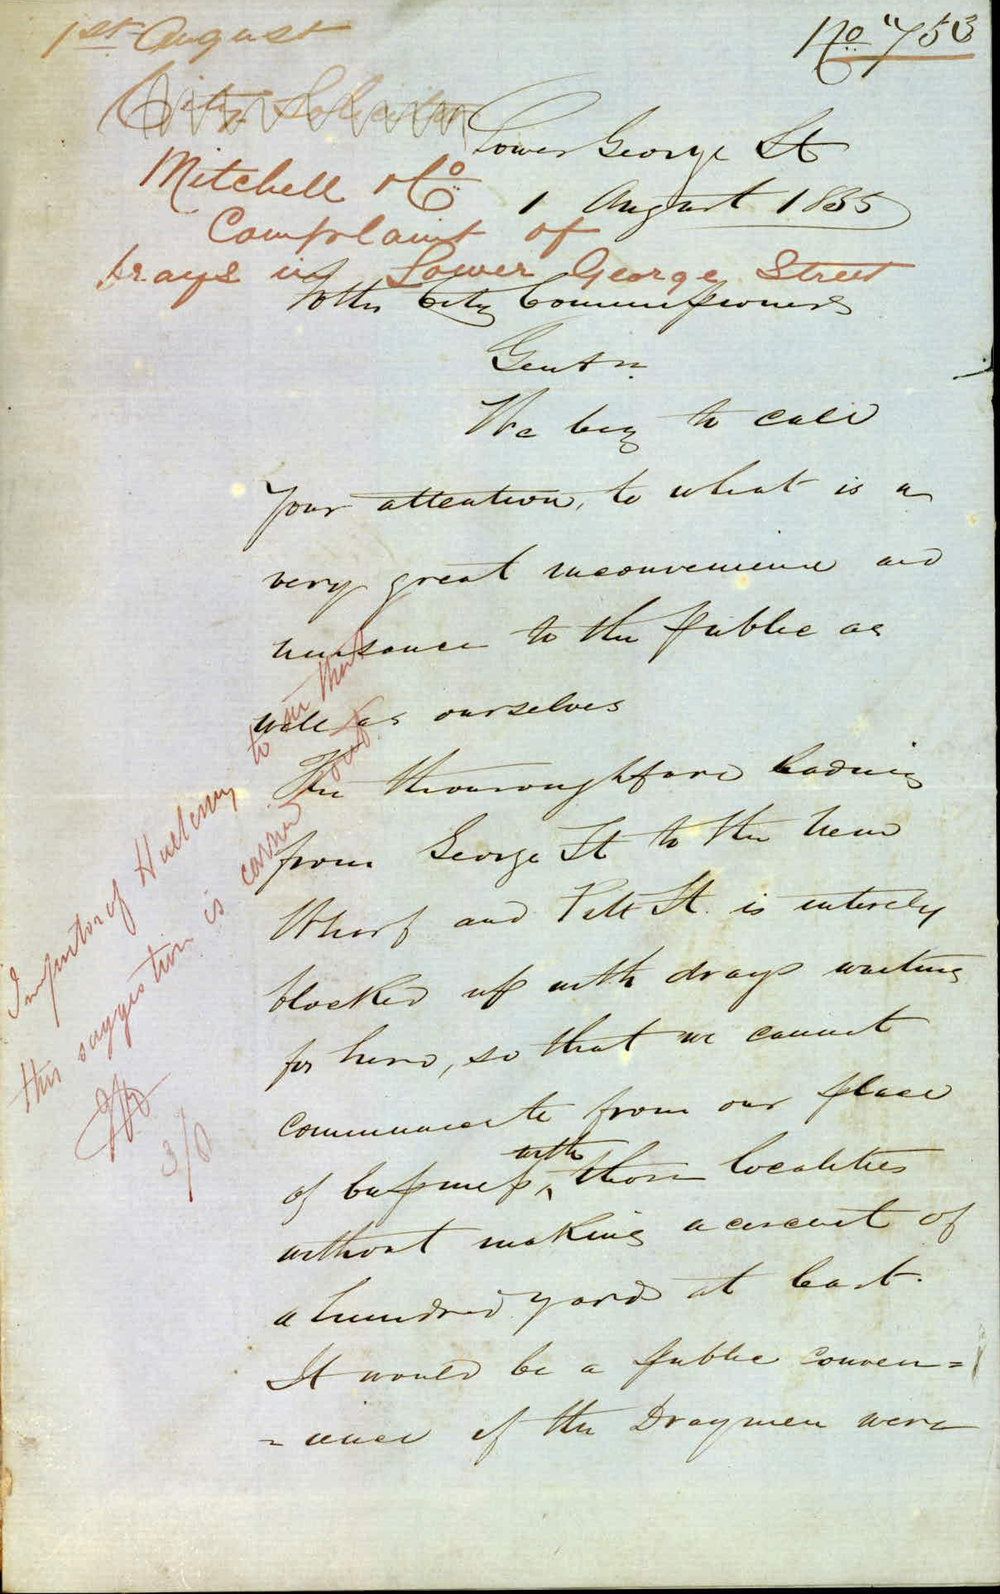 1st August
No "753
City Solicitor
Lower George St
Mitchell & Co
1 August 1855
Complaint of
drays in Lower George Street
To the City Commissioners
Gentn
We beg to call
Your attention, to what is a
very great inconvenience and
nuisance to the Public as
well as ourselves
The thouroughfare leading
from George St to the new
Wharf and Pitt St. is entirely
blocked up with drays waiting
for hire, so that we cannot
communicate from our place
of business, with those localities
without making a circuit of
a hundred yards at least.
It would be a public conven=
=ience if the Draymen were
Inspector of Nuisances to see that
this suggestion is carried out.
3/8